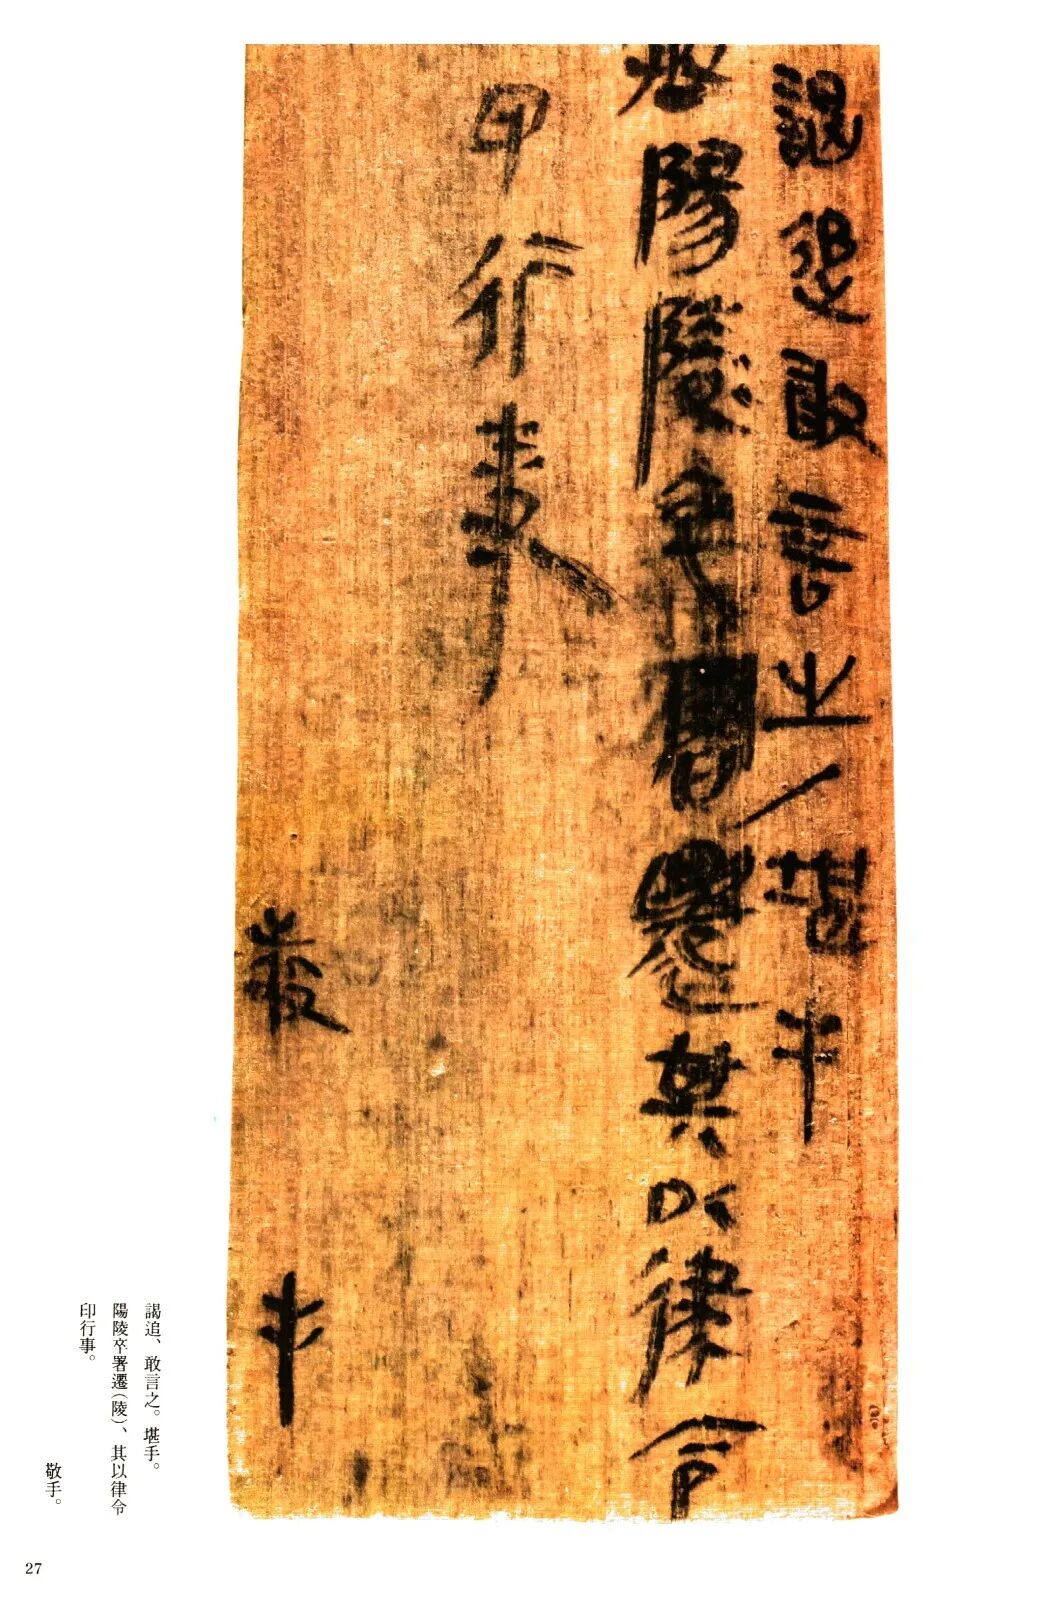 謁追敢言之/堪手
陽陵卒署遷其以律令
印行事
敬手
謁追、敢言之。堪手。
陽陵卒署遷(陵)、其以律令
印行事。
敬手。
27